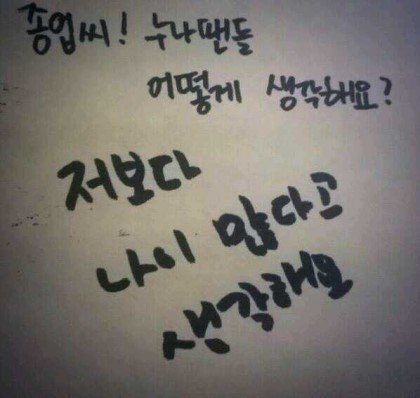 종업씨! 누나팬들
어떻게 생각해요?
저보다
나이 많다고
생각해요